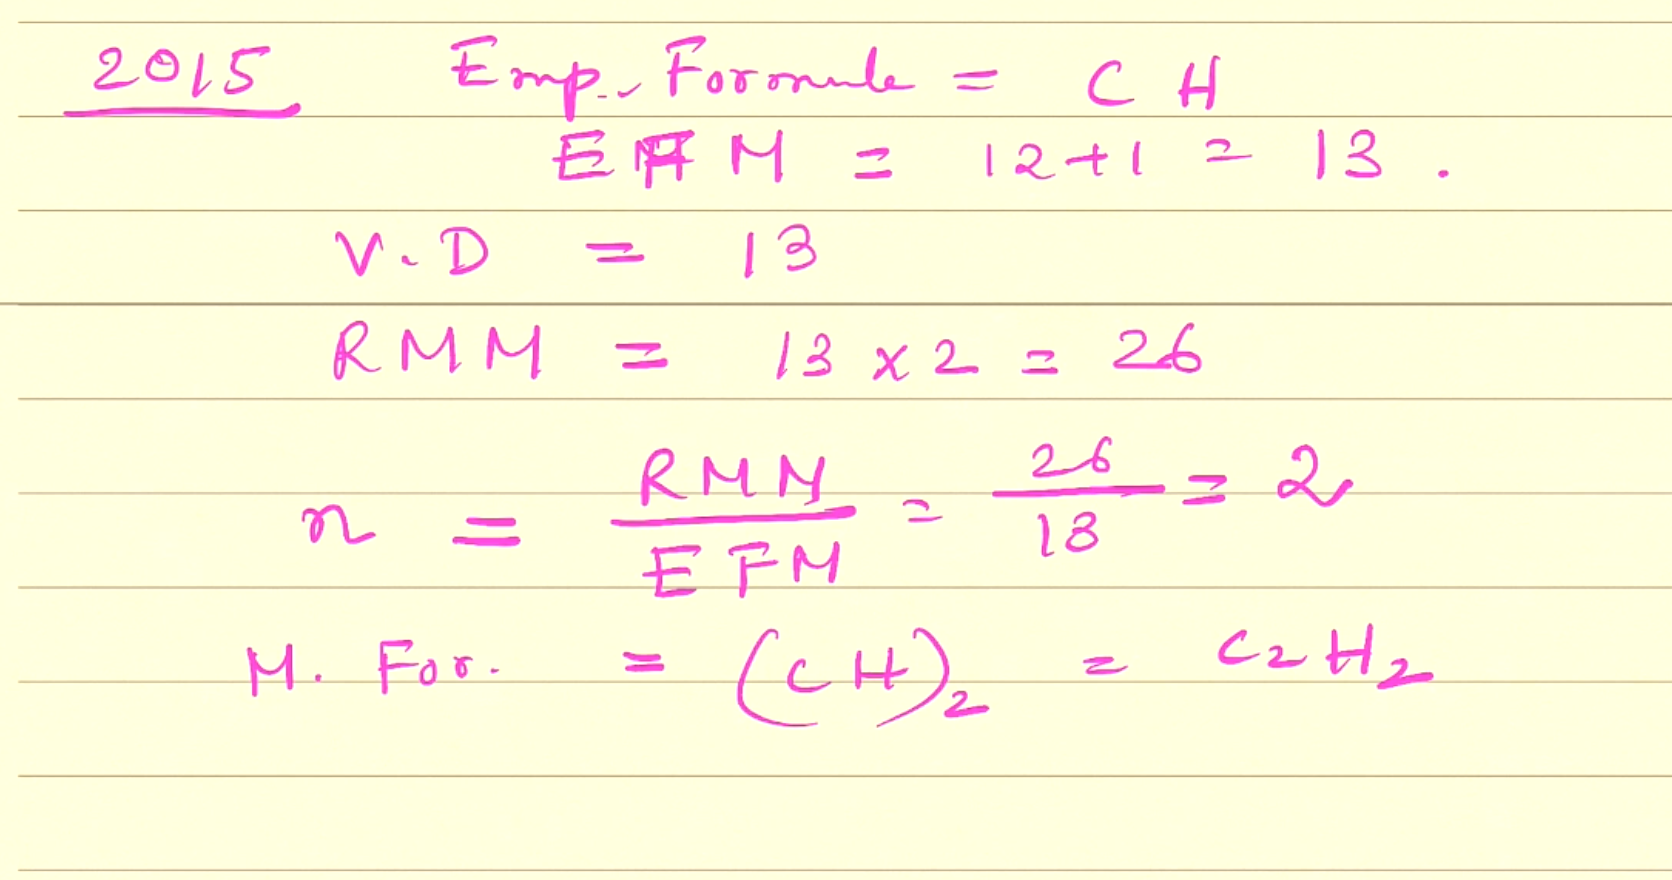 2015 Emp. Formula = CH
EFM = 12+1 = 13.
V.D = 13
RMM = 13 x 2 = 26
n = RMM / EFM = 26 / 13 = 2
M. For. = (CH)2 = C2H2